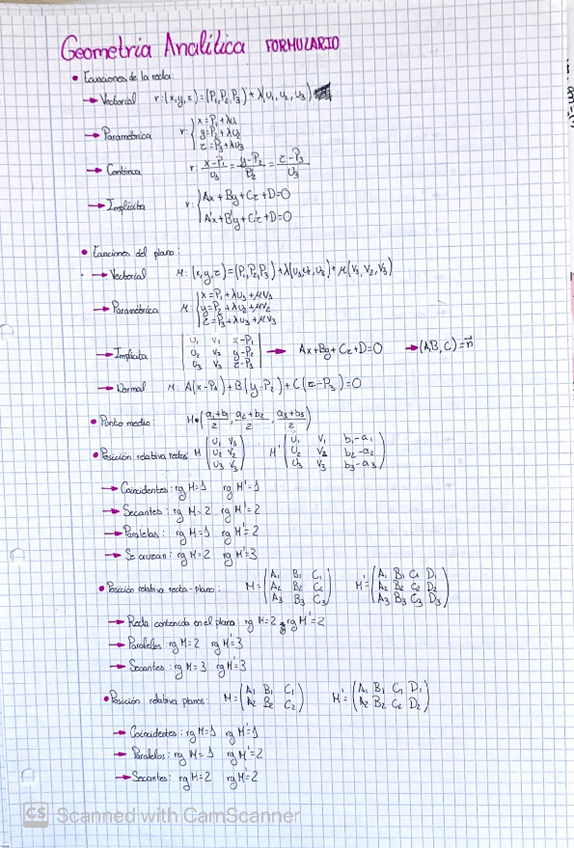 Geometría Analítica FORMULARIO
• Ecuaciones de la recta:
→ Vectorial r:(x,y,z)=(P₁,P₂,P₃)+λ(u₁,u₂,u₃)
→ Paramétrica r:{x=P₁+λu₁
y=P₂+λu₂
z=P₃+λu₃
→ Continua r: (x-P₁)/U₁=(y-P₂)/P₂=(z-P₃)/U₃
→ Implícita r:{Ax+By+Cz+D=0
A'x+B'y+C'z+D=0
• Ecuaciones del plano:
→ Vectorial π:(x,y,z)=(P₁,P₂,P₃)+λ(u₁,u₂,u₃)+μ(V₁,V₂,V₃)
→ Paramétrica π:{x=P₁+λu₃+μV₃
y=P₂+λu₂+μV₂
z=P₃+λu₃+μV₃
→ Implícita |U₁ V₁ x-P₁|
|U₂ V₂ y-P₂| → Ax+By+Cz+D=0 → (A,B,C)=n⃗
|U₃ V₃ z-P₃|
→ Normal π: A(x-P₁)+B(y-P₂)+C(z-P₃)=0
• Punto medio: M•((a₁+b₁)/2, (a₂+b₂)/2, (a₃+b₃)/2)
• Posición relativa rectas M (U₁ V₁ M' (U₁ V₁ b₁-a₁
U₂ V₂ U₂ V₂ b₂-a₂
U₃ V₃) U₃ V₃ b₃-a₃)
→ Coincidentes: rg M=1 rg M'=1
→ Secantes: rg M=2 rg M'=2
→ Paralelas: rg M=1 rg M'=2
→ Se cruzan: rg M=2 rg M'=3
• Posición relativa recta-plano: M=(A₁ B₁ C₁ M'=(A₁ B₁ C₁ D₁
A₂ B₂ C₂ A₂ B₂ C₂ D₂
A₃ B₃ C₃) A₃ B₃ C₃ D₃)
→ Recta contenida en el plano: rg M=2 y rg M'=2
→ Paralelos rg M=2 rg M'=3
→ Secantes: rg M=3 rg M'=3
• Posición relativa planos: M=(A₁ B₁ C₁ M'=(A₁ B₁ C₁ D₁
A₂ B₂ C₂) A₂ B₂ C₂ D₂)
→ Coincidentes: rg M=1 rg M'=1
→ Paralelos: rg M=1 rg M'=2
→ Secantes: rg M=2 rg M'=2
CS Scanned with CamScanner